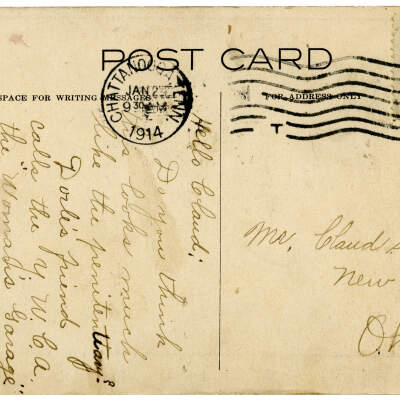 POST CARD
SPACE FOR WRITING MESSAGES
FOR ADDRESS ONLY
CHATTANOOGA, TENN.
JAN 2
9 30 AM
1914
T
Hello Claud;
Don you think
looks much
like the penitentiary?
Dovie's friend
calls the Y.W.C.A.
the "Woman's Garage"
Mr. Claud
New
Ok